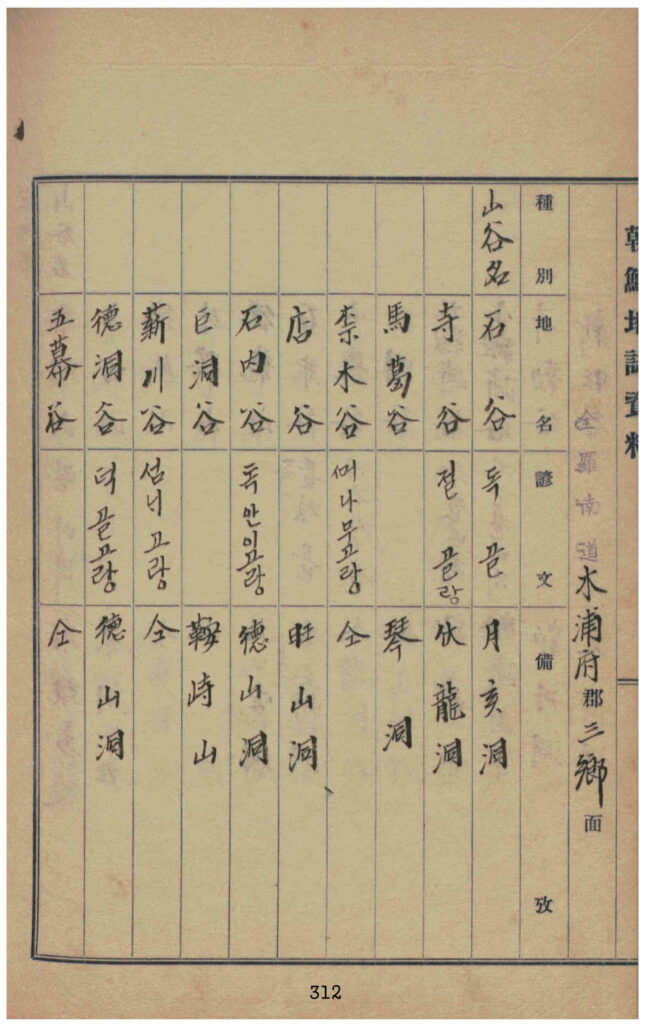 朝鮮地誌資料
全羅南道木浦府郡三鄉面
種別 地名 諺文 備攷
山谷名 石谷 독끌 月亥洞
寺谷 절끌랑 伏龍洞
馬葛谷 琴洞
柰木谷 머나무고랑 仝
店谷 旺山洞
石內谷 독안이고랑 德山洞
巨洞谷 鞍峙山
薪川谷 섭너고랑 仝
德洞谷 덕끌고랑 德山洞
五幕谷 仝
312